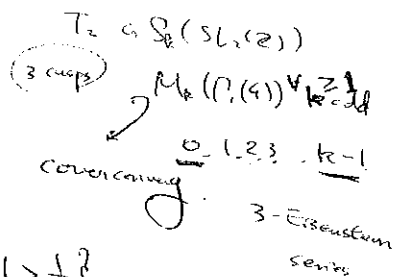 T₂ ↻ S_k(SL₂(ℤ))
3 cusps
M_k(Γ₁(4)) ∀ k ≥ 1 odd
0 1 2 3 . k-1
3-Eisenstein
series